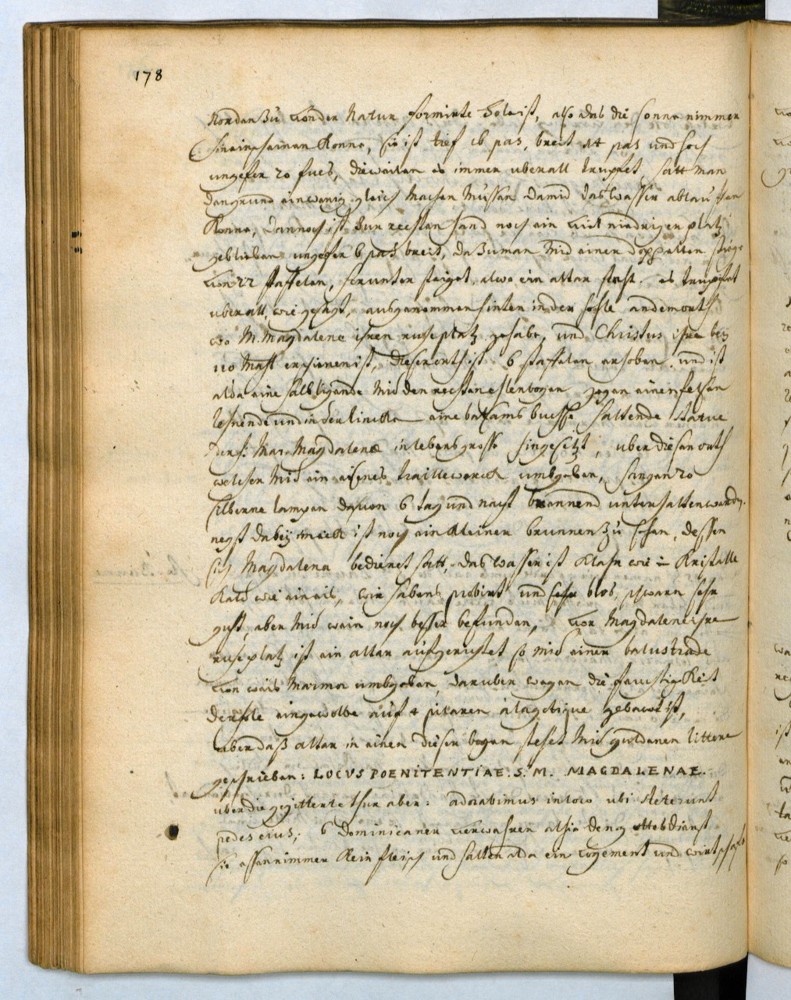 178
Norden zu von der Natur formirte Hole ist, also das die sonne nimmer
hinein scheinen konne, sie ist tief 16 pas, breit 24 pas und hoch
ungefer 20 fues, dieweilen es immer uberall trupfet hatt man
den grund ein wenig gleich machen mussen damid das wasser ablauffen
konne, dannoch ist zur rechten hand noch ein viel niedriger platz
geblieben ungefer 6 pas breit, da zu man mid einer doppelten stige
von 22 staffelen, herunter steiget, alwo ein altar steht. es trupfet
uberall, wie gesagt, ausgenommen hinten in der hohle an dem orth
wo M. Magdalene ihren ruheplatz gehabt, und Christus ihr
erschienen ist, dieser orth ist 6 staffelen erhoben, und ist
alda eine halb ligende mid den rechten elenbogen gegen einen felsen
lehnende und in der lincken eine balsams buchse haltende statue
der h: Mar: Magdalene in lebensgrosse hingesetzt, uber diesen orth
welcher mid ein eisenes traillewerck umbgeben, hangen 20
silberne lampen davon 6 tag und nacht brennend unterhalten werden.
negst dabey ist noch ein kleiner brunnen zu sehen, dessen
sich Magdalena bedienet hatt, das wasser ist klahr wie Kristalle
kalt wie ein eis, wir habens probirt und bloß, zwaren sehr
guht, aber mid wein noch besser befunden, vor Magdalene ihre
ruheplatz ist ein altar aufgerichtet so mid einer balustrade
von weis Marmor umbgeben, daruber wegen die feuchtigkeit
derhole eingewolbe auf 4 pilaren a la gotique gebawt ist,
uber das altar in einen dieser bogen stehet mid goldenen littern
geschrieben: LOCVS POENITENTIAE: S: M. MAGDALENAE.
uber die gegitterte thur aber: adorabimus in loco ubi steterunt
pedes eius; 6 Dominicaner verwahren alhie den gottesdienst
sie essen nimmer kein fleisch und halten alda ein logement und wirtschafft